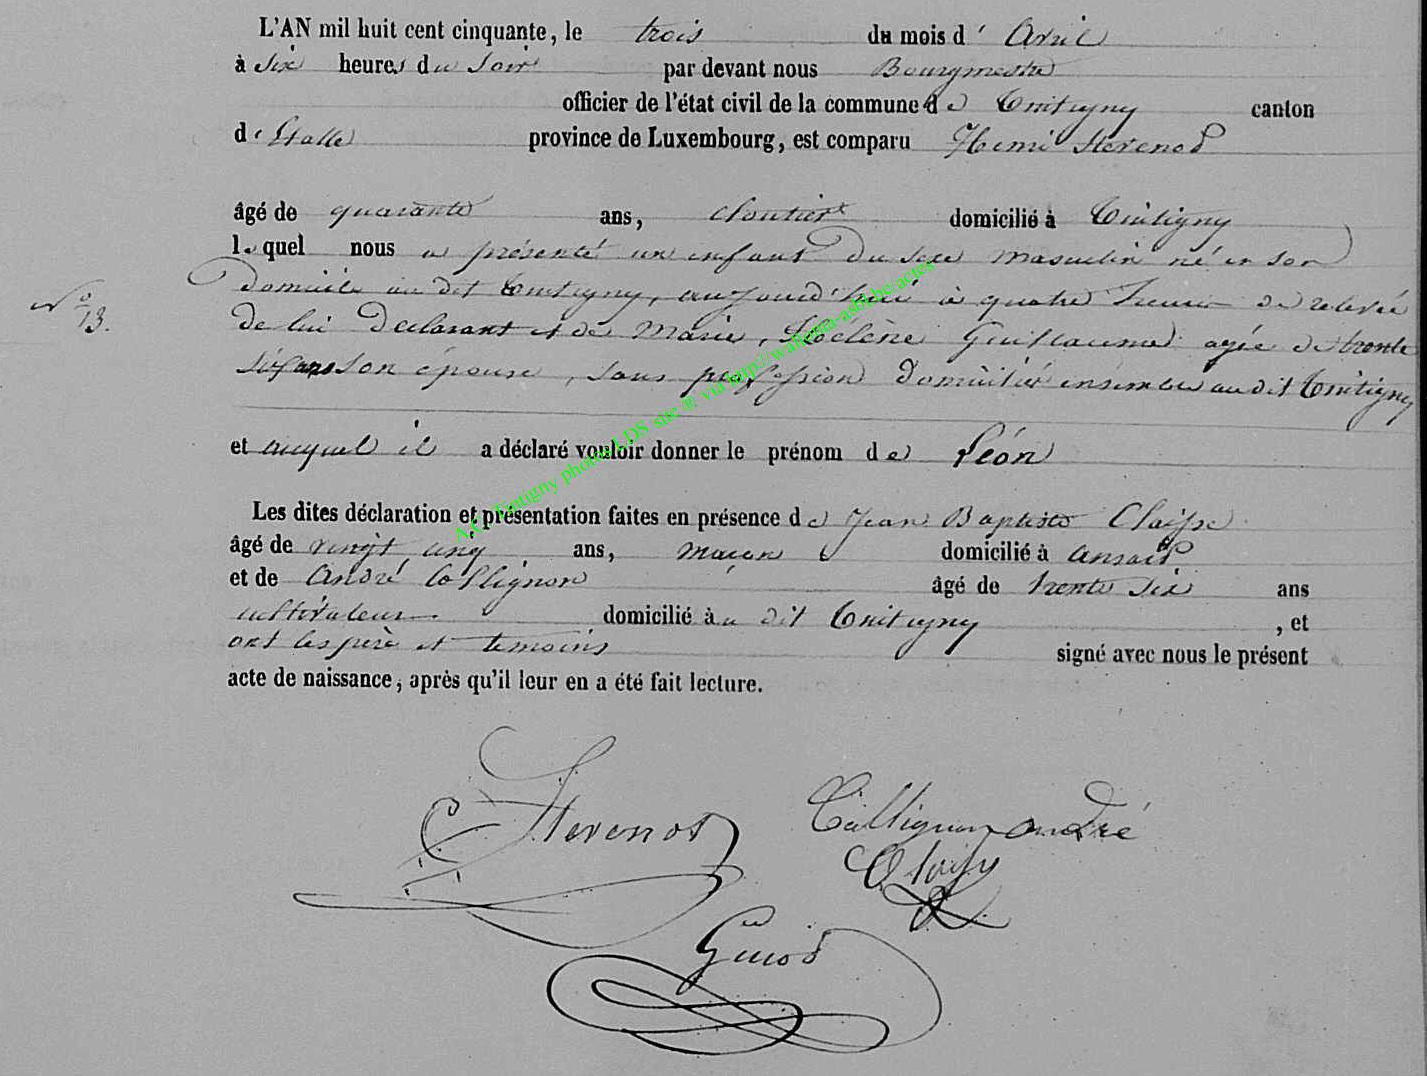 L'AN mil huit cent cinquante, le trois du mois d'Avril
à six heures du soir par devant nous Bourgmestre
officier de l'état civil de la commune de Tintigny canton
d'Etalle province de Luxembourg, est comparu Henri Stevenot
âgé de quarante ans, cloutier domicilié à Tintigny
lequel nous a présenté un enfant du sexe masculin né en son
domicile au dit Tintigny, aujourd'hui à quatre heures de relevée
de lui déclarant et de Marie, Hélène Guillaume agée de trente
six ans son épouse, sans profession domiciliés ensemble au dit Tintigny
et auquel il a déclaré vouloir donner le prénom de Léon
Les dites déclaration et présentation faites en présence de Jean Baptiste Claisse
âgé de vingt cinq ans, maçon domicilié à ansart
et de André Collignon âgé de trente six ans
cultivateur domicilié au dit Tintigny, et
ont les père et témoins signé avec nous le présent
acte de naissance, après qu'il leur en a été fait lecture.
N° 13.
Stevenot
Collignon andré
Claisse
A.C. Tintigny photos LDS site ® via http://wallonia-asbl.be/actes